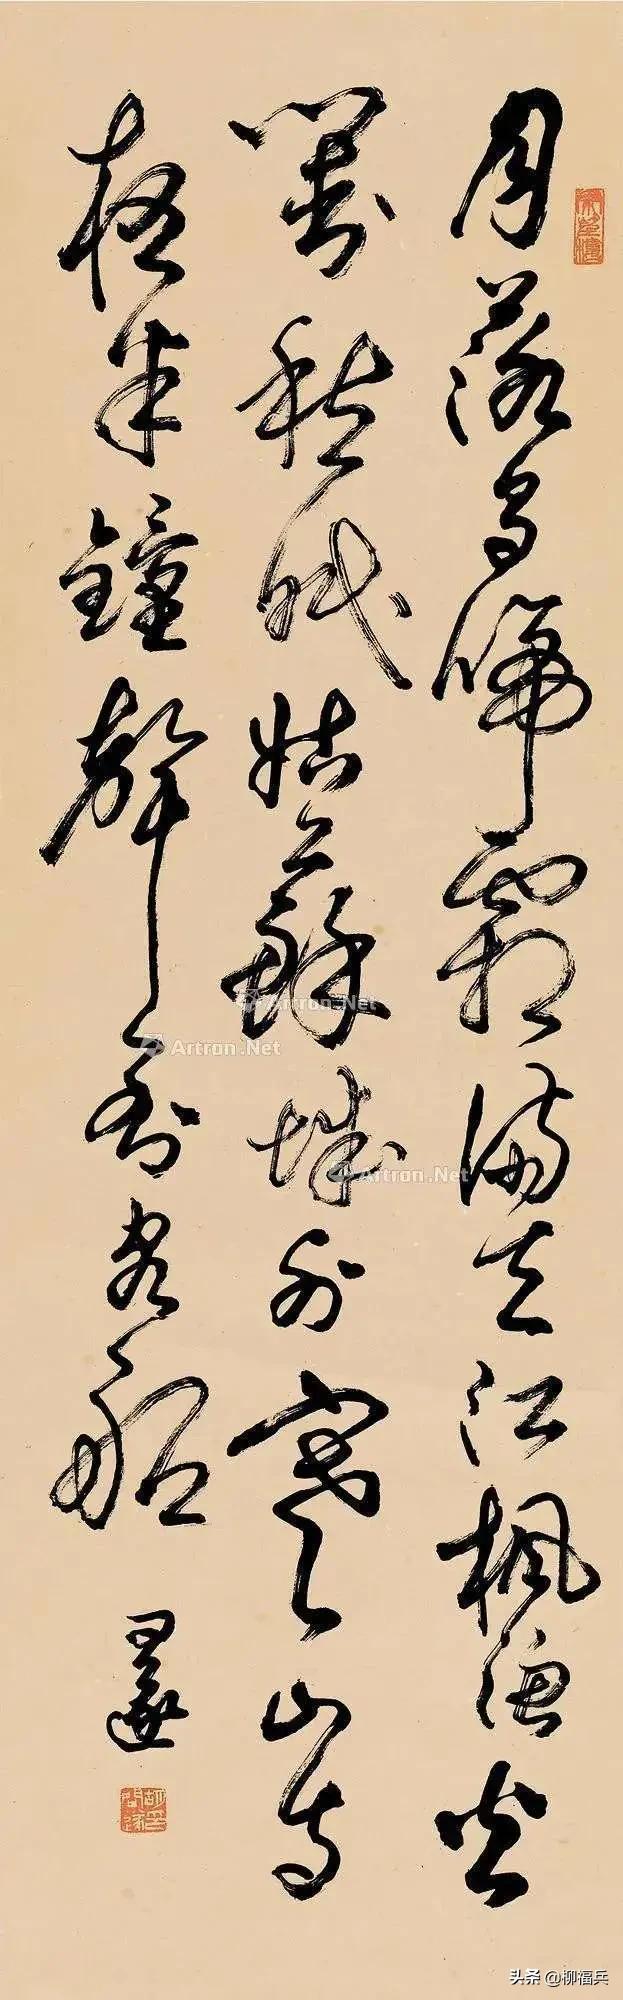 月落烏啼霜滿天江楓漁火
對愁眠姑蘇城外寒山寺
夜半鐘聲到客船
問遂
Artron.Net
Artron.Net
Artron.Net
头条 @柳福兵